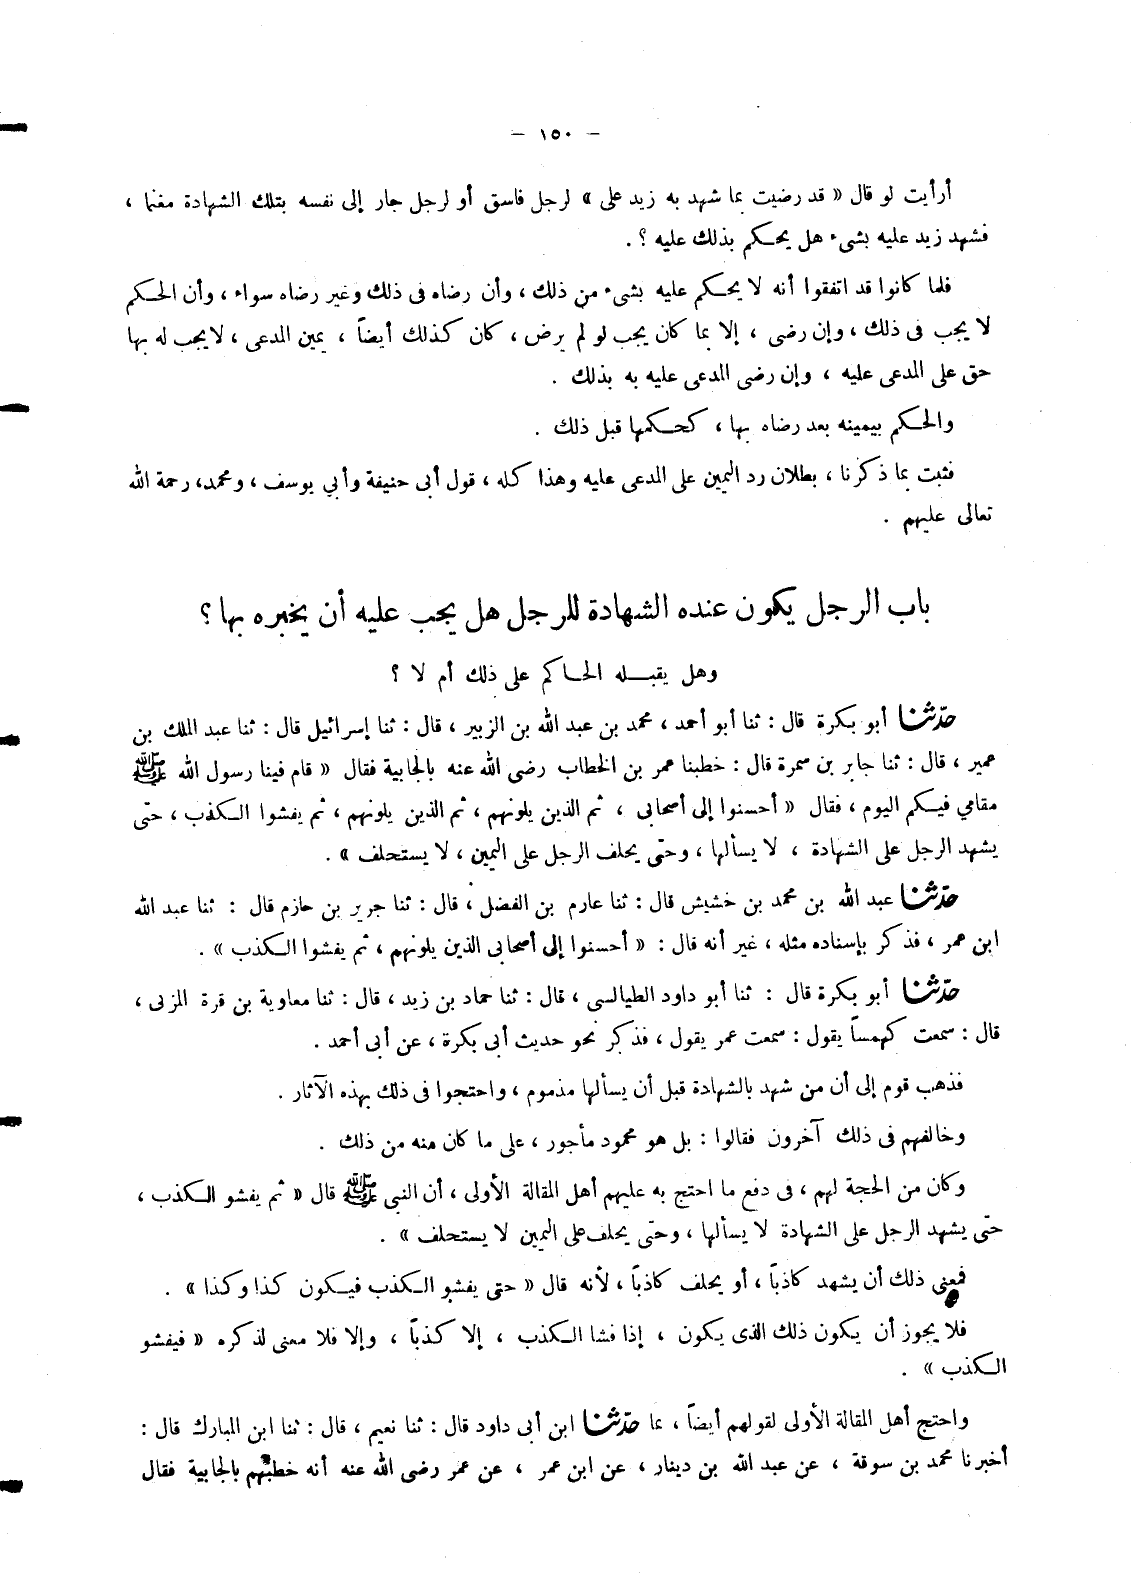 — ١٥٠ —
أرأيت لو قال « قد رضيت بما شهد به زيد على » لرجل فاسق أو لرجل جار إلى نفسه بتلك الشهادة مغنما ،
فشهد زيد عليه بشىء هل يحكم بذلك عليه ؟ .
فلما كانوا قد اتفقوا أنه لا يحكم عليه بشىء من ذلك ، وأن رضاه فى ذلك وغير رضاه سواء ، وأن الحكم
لا يجب فى ذلك ، وإن رضى ، إلا بما كان يجب لو لم يرض ، كان كذلك أيضاً ، يمين المدعى ، لا يجب له بها
حق على المدعى عليه ، وإن رضى المدعى عليه به بذلك .
والحكم بيمينه بعد رضاه بها ، كحكمها قبل ذلك .
فثبت بما ذكرنا ، بطلان رد اليمين على المدعى عليه وهذا كله ، قول أبى حنيفة وأبي يوسف ، ومحمد، رحمة الله
تعالى عليهم .
باب الرجل يكون عنده الشهادة للرجل هل يجب عليه أن يخبره بها ؟
وهل يقبله الحاكم على ذلك أم لا ؟
حدّثنا أبو بكرة قال : ثنا أبو أحمد ، محمد بن عبد الله بن الزبير ، قال : ثنا إسرائيل قال : ثنا عبد الملك بن
عمير ، قال : ثنا جابر بن سمرة قال : خطبنا عمر بن الخطاب رضى الله عنه بالجابية فقال « قام فينا رسول الله ﷺ
مقامي فيكم اليوم ، فقال « أحسنوا إلى أصحابى ، ثم الذين يلونهم ، ثم الذين يلونهم ، ثم يفشوا الكذب ، حتّى
يشهد الرجل على الشهادة ، لا يسألها ، وحتّى يحلف الرجل على اليمين ، لا يستحلف » .
حدّثنا عبد الله بن محمد بن خشيش قال : ثنا عارم بن الفضل ، قال : ثنا جرير بن حازم قال : ثنا عبد الله
ابن عمر ، فذكر بإسناده مثله ، غير أنه قال : « أحسنوا إلى أصحابى الذين يلونهم ، ثم يفشوا الكذب » .
حدّثنا أبو بكرة قال : ثنا أبو داود الطيالسى ، قال : ثنا حماد بن زيد ، قال : ثنا معاوية بن قرة المزنى ،
قال : سمعت كهمساً يقول : سمعت عمر يقول ، فذكر نحو حديث أبى بكرة ، عن أبى أحمد .
فذهب قوم إلى أن من شهد بالشهادة قبل أن يسألها مذموم ، واحتجوا فى ذلك بهذه الآثار .
وخالفهم فى ذلك آخرون فقالوا : بل هو محمود مأجور ، على ما كان منه من ذلك .
وكان من الحجة لهم ، فى دفع ما احتج به عليهم أهل المقالة الأولى ، أن النبى ﷺ قال « ثم يفشو الكذب ،
حتّى يشهد الرجل على الشهادة لا يسألها ، وحتّى يحلف على اليمين لا يستحلف » .
فمعنى ذلك أن يشهد كاذباً ، أو يحلف كاذباً ، لأنه قال « حتى يفشو الكذب فيكون كذا وكذا » .
فلا يجوز أن يكون ذلك الذى يكون ، إذا فشا الكذب ، إلا كذباً ، وإلا فلا معنى لذكره « فيفشو
الكذب » .
واحتج أهل المقالة الأولى لقولهم أيضاً ، بما حدّثنا ابن أبى داود قال : ثنا نعيم ، قال : ثنا ابن المبارك قال :
أخبرنا محمد بن سوقة ، عن عبد الله بن دينار ، عن ابن عمر ، عن عمر رضى الله عنه أنه خطبهم بالجابية فقال